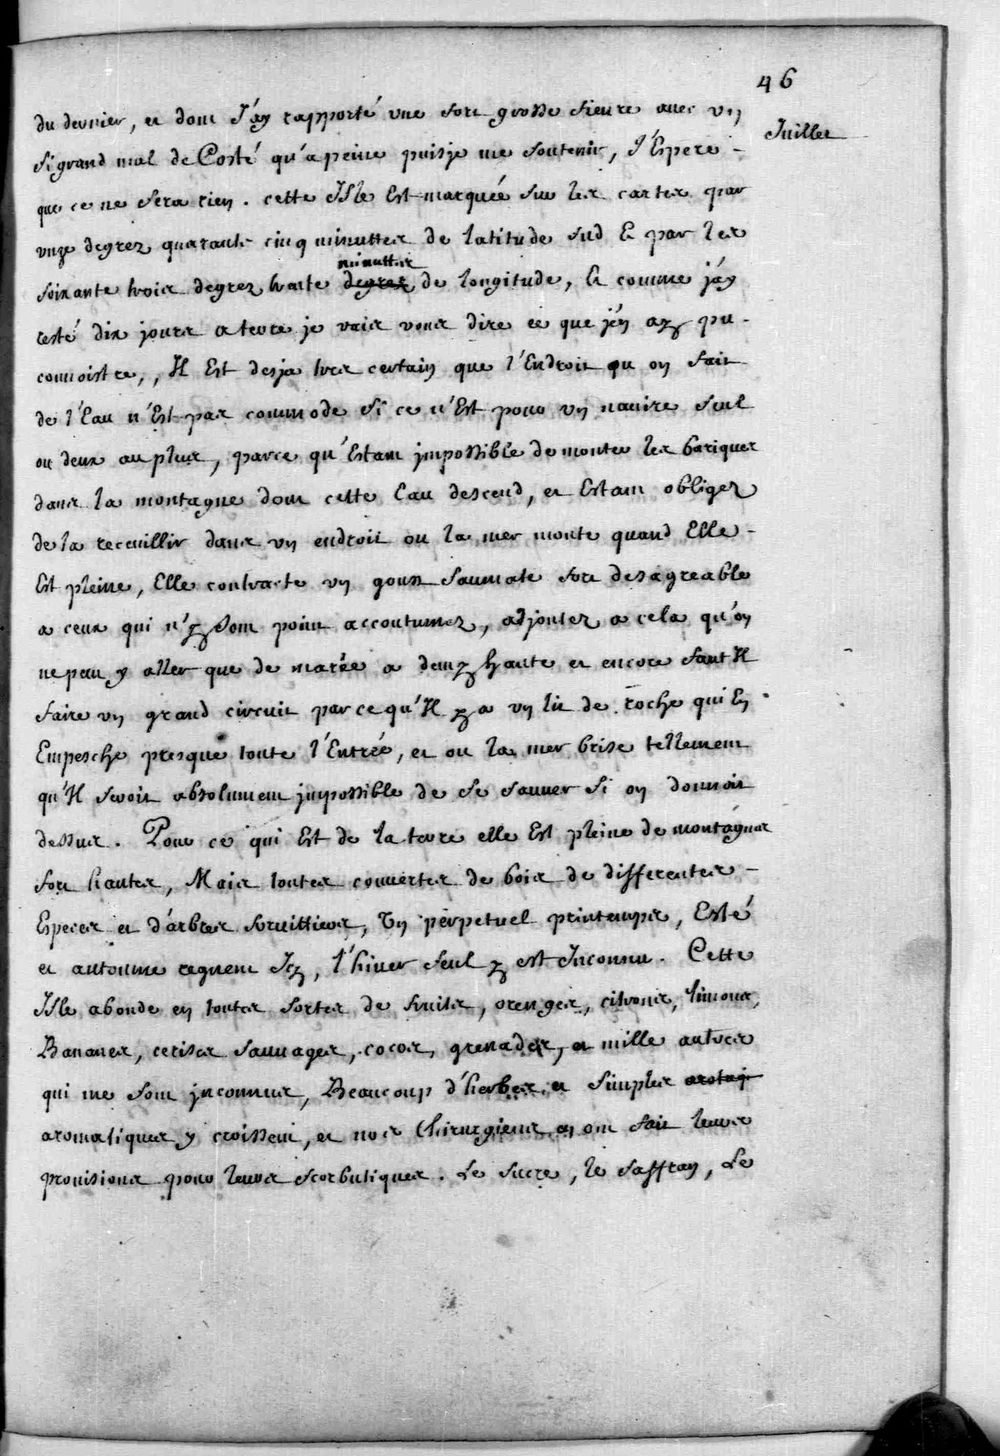 46
Juillet
du dernier, et dont J'ay rapporté une fort grosse fievre avec un
si grand mal de Costé qu'a peine puisje me soutenir, J'Espere -
que ce ne sera rien. cette Isle Est marquée sur les cartes par
unze degrez quarante cinq minuttes de latitude sud Et par les
minuttes
soixante trois degrez trente degrez de longitude, Et comme j'ay
resté dix jours a terre je vais vous dire ce que j'en ay pu -
connoistre,, Il Est desja tres certain que l'Endroit ou on fait
de l'Eau n'Est pas commode si ce n'Est pour un navire seul
ou deux au plus, parce qu'Estant impossible de monter les bariques
dans la montagne dont cette Eau descend, et Estant obligez
de la receuillir dans un endroit ou la mer monte quand Elle -
Est pleine, Elle contracte un goust saumate fort desagreable
a ceux qui n'y sont point accoutumez, adjoutez a cela qu'on
ne peut y aller que de marée a demy haute et encore faut Il
faire un grand circuit parce qu'Il y a un lit de roche qui En
Empesche presque toute l'Entrée, et ou la mer brise tellement
qu'Il seroit absolument impossible de se sauver si on donnoit
dessus. Pour ce qui Est de la terre elle Est pleine de montagnes
fort hautes, Mais toutes couvertes de bois de differentes -
Especes et d'arbres fruittiers, Un perpetuel printemps, Esté
et automne regnent Icy, l'hiver seul y est Inconnu. Cette
Isle abonde en toutes sortes de fruits, orenges, citrons, limons,
Bananes, cerises sauvages, cocos, grenades, et mille autres
qui me sont inconnus, Beaucoup d'herbes et simples arotaq
aromatiques y croissent, et nos Chirurgiens en ont fait leurs
provisions pour leurs scorbutiques. Le sucre, le saffran, Le